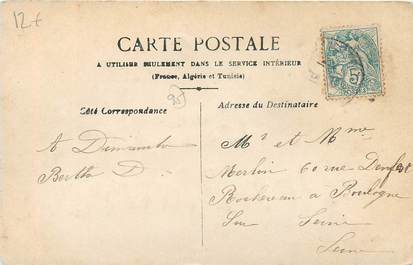 12f
CARTE POSTALE
A UTILISER SEULEMENT DANS LE SERVICE INTÉRIEUR
(France, Algérie et Tunisie)
Côté Correspondance
Adresse du Destinataire
A Dimanche
Berthe D.
Mr et Mme
Merlin 60 rue Denfert
Rochereau a Boulogne
Sur Seine
Seine